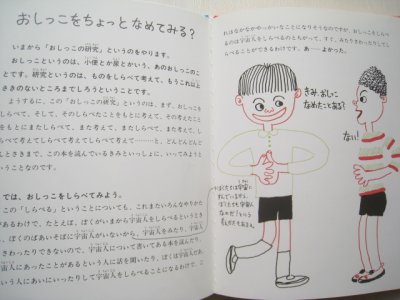 おしっこをちょっとなめてみる?
いまから「おしっこの研究」というのをやります。
おしっこというのは、小便とか尿とかいう、あのおしっこのこ
とです。研究というのは、ものをしらべて考えて、もうこれ以上
さきのないところまでしろうということです。
ようするに、この「おしっこの研究」というのは、まず、おしっこを
しらべて、そして、そのしらべたことをもとに考えて、その考えたこと
をもとにまたしらべて、また考えて、またしらべて、また考えて、
しらべて考えてしらべて考えてしらべて考えて……と、どんどんして
んとさきまで、この本を読んでいるきみといっしょに、いってみよう
いうことなのです。
では、おしっこをしらべてみよう。
この「しらべる」ということについても、これまたいろんなやりかた
があるわけで、たとえば、ぼくがいまから宇宙人をしらべるという
、ぼくのばあいそばに宇宙人がいないから、宇宙人をみたり、宇宙人
さわったりできないので、宇宙人について書いてある本を読んだり、
宇宙人にあったことがあるという人に話を聞いたり、ぼくは宇宙人だ、
いう人にあいにいったりして宇宙人をしらべることになるわけで、こ
ればなかなかやっかいなことになりそうなのですが、おしっこをしら
べるのは宇宙人をしらべるのとちがって、すぐ、みたりさわったりして
しらべることができるわけです。あーよかった。
きみ、おしっこ
なめたことある?
ない!
ぼくたちは宇宙に
すんでいるから、
ぼくたちも宇宙人
なのだ!という
考え方もある。